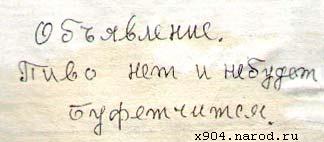 Объявление.
Пиво нет и небудет
Буфетчится.
x904.narod.ru